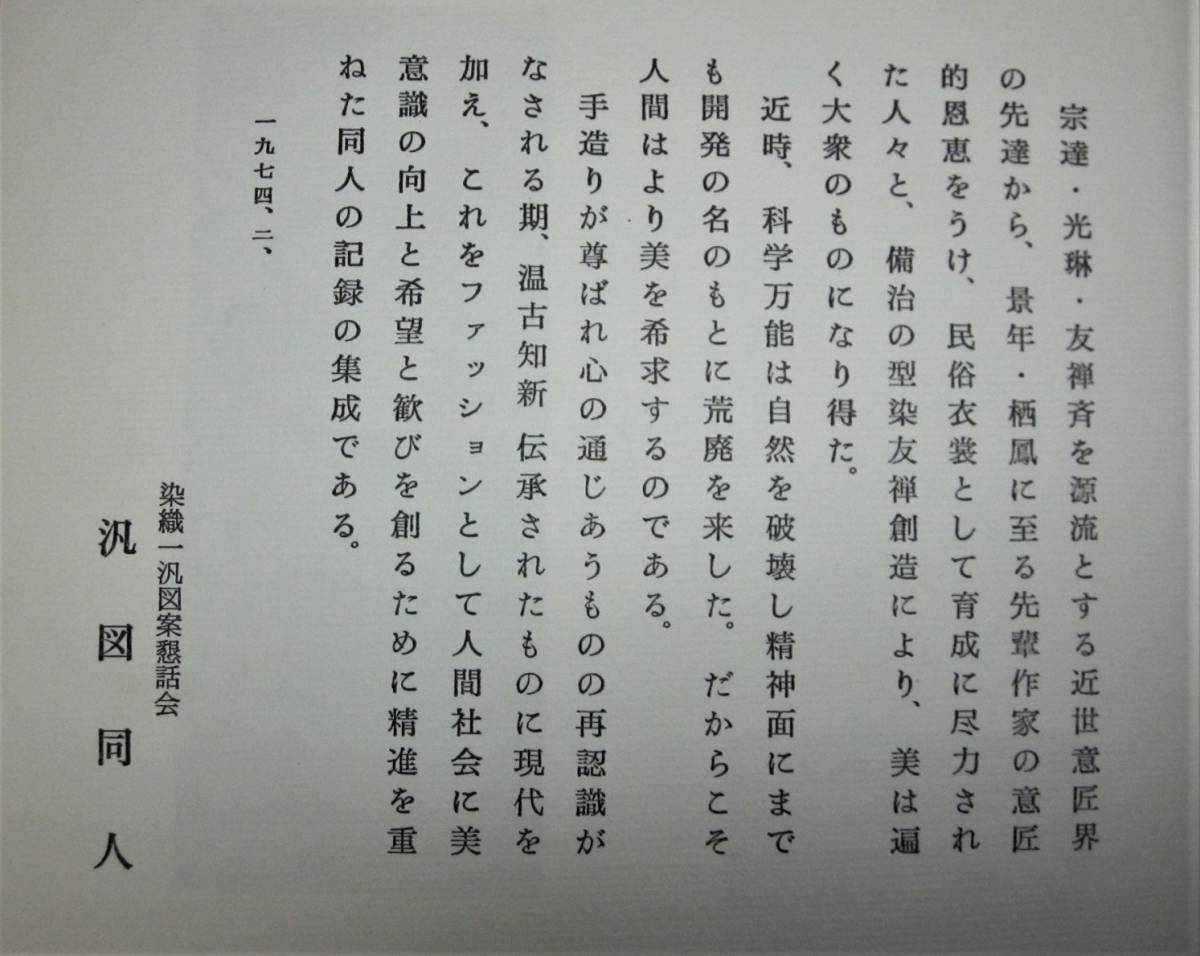 宗達・光琳・友禅斉を源流とする近世意匠界
の先達から、景年・栖鳳に至る先輩作家の意匠
的恩恵をうけ、民俗衣裳として育成に尽力され
た人々と、備治の型染友禅創造により、美は遍
く大衆のものになり得た。
近時、科学万能は自然を破壊し精神面にまで
も開発の名のもとに荒廃を来した。だからこそ
人間はより美を希求するのである。
手造りが尊ばれ心の通じあうものの再認識が
なされる期、温古知新 伝承されたものに現代を
加え、これをファッションとして人間社会に美
意識の向上と希望と歓びを創るために精進を重
ねた同人の記録の集成である。
一九七四、二、
染織一汎図案懇話会
汎図同人